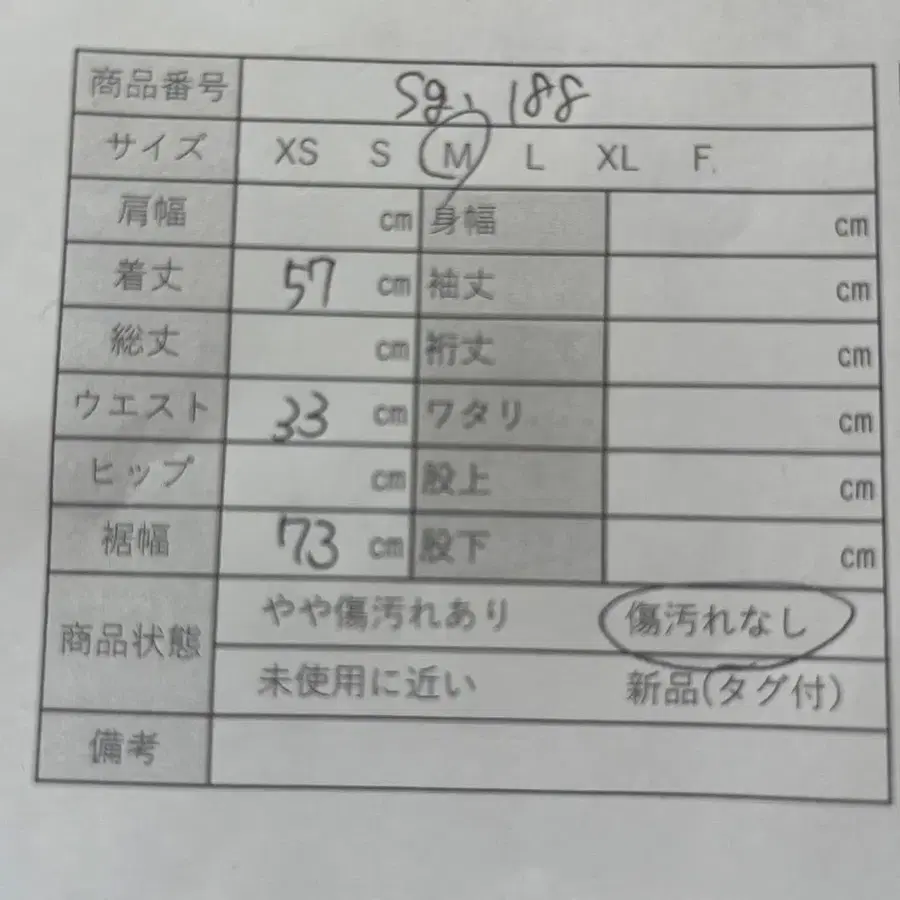 商品番号 Sg、188
サイズ XS S M L XL F
肩幅 cm 身幅 cm
着丈 57 cm 袖丈 cm
総丈 cm 裄丈 cm
ウエスト 33 cm ワタリ cm
ヒップ cm 股上 cm
裾幅 73 cm 股下 cm
商品状態 やや傷汚れあり 傷汚れなし
未使用に近い 新品(タグ付)
備考